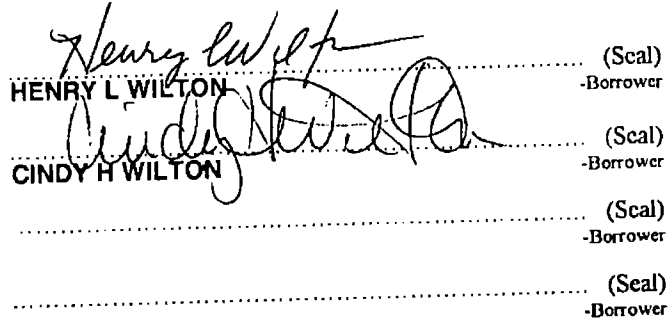 Henry L Wilton (Seal)
HENRY L WILTON -Borrower
Cindy H Wilton (Seal)
CINDY H WILTON -Borrower
(Seal)
-Borrower
(Seal)
-Borrower